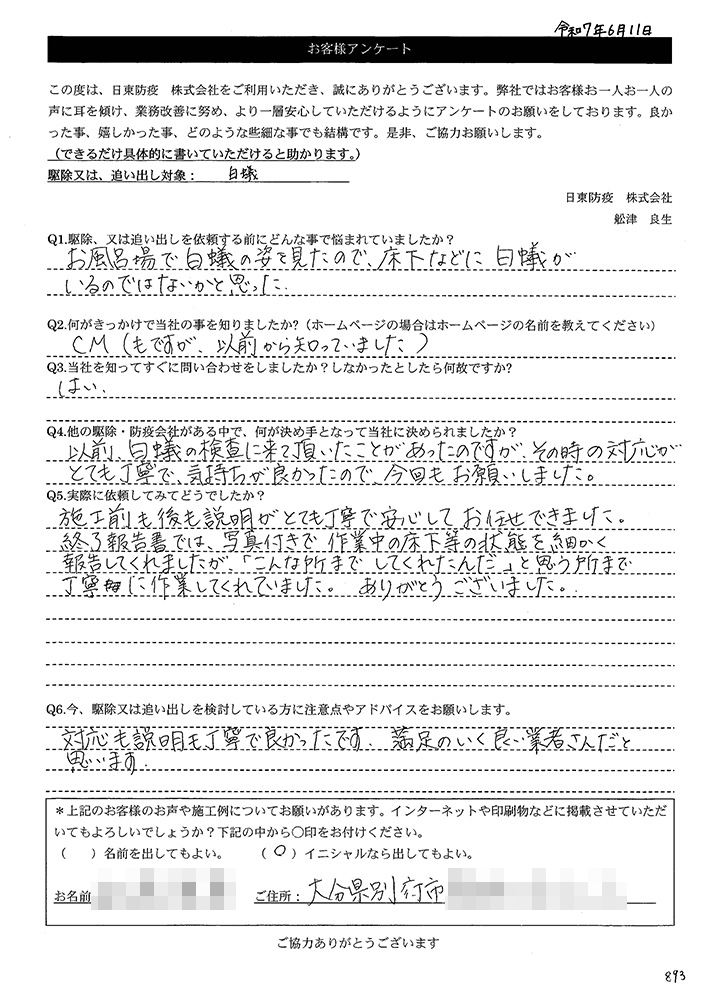 令和7年6月11日
お客様アンケート
この度は、日東防疫　株式会社をご利用いただき、誠にありがとうございます。弊社ではお客様お一人お一人の
声に耳を傾け、業務改善に努め、より一層安心していただけるようにアンケートのお願いをしております。良か
った事、嬉しかった事、どのような些細な事でも結構です。是非、ご協力お願いします。
（できるだけ具体的に書いていただけると助かります。）
駆除又は、追い出し対象：　白蟻
日東防疫　株式会社
舩津　良生
Q1.駆除、又は追い出しを依頼する前にどんな事で悩まれていましたか？
お風呂場で白蟻の姿を見たので、床下などに白蟻が
いるのではないかと思った.
Q2.何がきっかけで当社の事を知りましたか?（ホームページの場合はホームページの名前を教えてください）
CM（もですが、以前から知っていました）
Q3.当社を知ってすぐに問い合わせをしましたか？しなかったとしたら何故ですか?
はい.
Q4.他の駆除・防疫会社がある中で、何が決め手となって当社に決められましたか？
以前、白蟻の検査に来て頂いたことがあったのですが、その時の対応が
とても丁寧で、気持ちが良かったので、今回もお願いしました。
Q5.実際に依頼してみてどうでしたか？
施工前も後も説明がとても丁寧で安心してお任せできました。
終了報告書では、写真付きで作業中の床下等の状態を細かく
報告してくれましたが、「こんな所までしてくれたんだ」と思う所まで
丁寧に作業してくれていました。ありがとうございました。
Q6.今、駆除又は追い出しを検討している方に注意点やアドバイスをお願いします。
対応も説明も丁寧で良かったです. 満足のいく良い業者さんだと
思います.
＊上記のお客様のお声や施工例についてお願いがあります。インターネットや印刷物などに掲載させていただ
いてもよろしいでしょうか？下記の中から○印をお付けください。
（　）名前を出してもよい。　（○）イニシャルなら出してもよい。
お名前　ご住所：大分県別府市
ご協力ありがとうございます
893